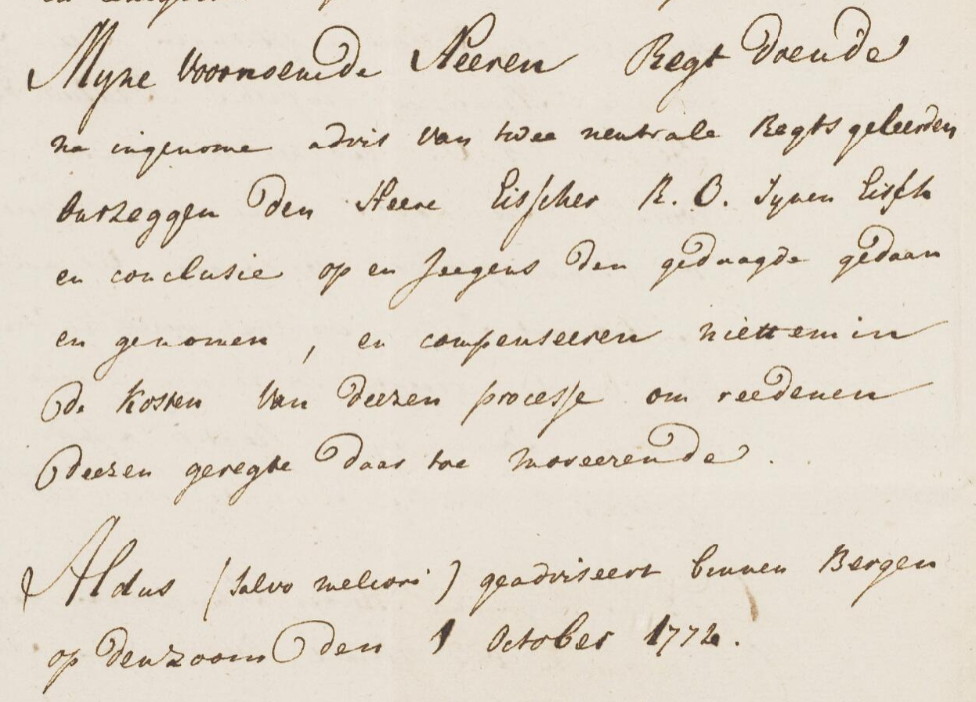 Myne voornoemde Heeren Regt doende
na ingenome advis van twee neutrale Regtsgeleerden
ontzeggen den Heere Eisscher R. O. synen Eisch
en conclusie op en jeegens den gedaagde gedaan
en genomen, en compenseeren niettemin
de kosten van deezen processe om reedenen
deezen geregte daar toe moveerende.
Aldus (salvo meliori) geadviseert binnen Bergen
op denzoom den 1 October 1772.